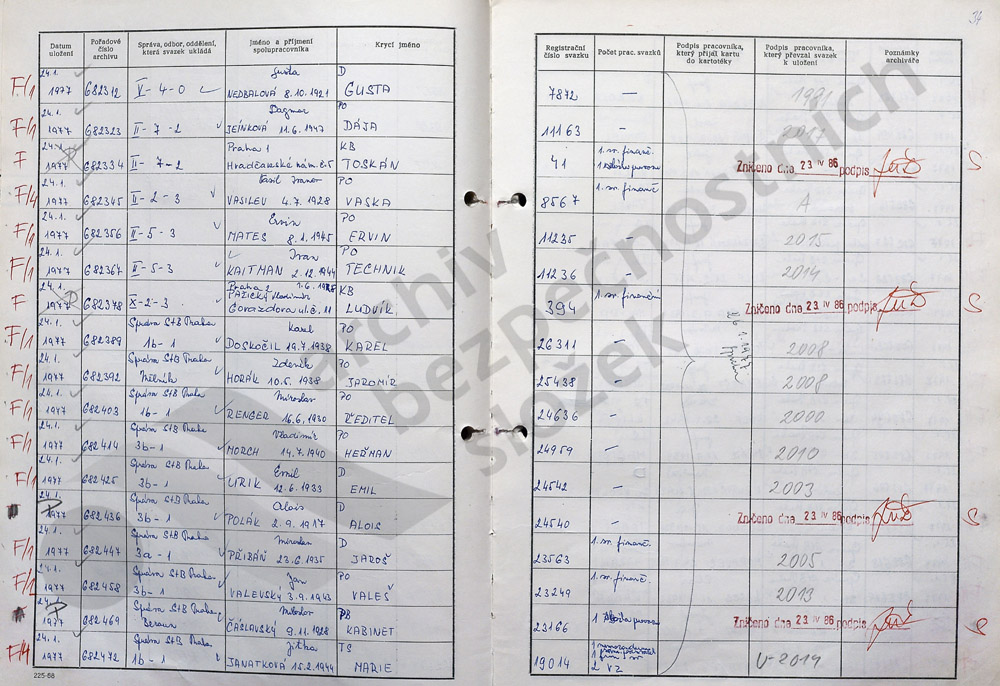 34
Datum uložení
Pořadové číslo archivu
Správa, odbor, oddělení, která svazek ukládá
Jméno a příjmení spolupracovníka
Krycí jméno
Registrační číslo svazku
Počet prac. svazků
Podpis pracovníka, který přijal kartu do kartotéky
Podpis pracovníka, který převzal svazek k uložení
Poznámky archiváře
F/1 24.1. 1977 682312 V-4-0 NEDBALOVÁ 8.10.1921 D GUSTA 7872 —
F/1 24.1. 1977 682323 II-7-2 Dagmar JEÍNKOVÁ 11.6.1947 PO DÁJA 11163 —
F 24.1. 1977 682334 II-7-2 Praha 1 Hradčanské nám. č.5 KB TOSKÁN 41 1. sv. finanč. Zničeno dna 23 IV 86 podpis S
F/4 24.1. 1977 682345 II-2-3 VASILEV 4.7.1928 PO VASKA 8567 1. sv. finanč A
F/1 24.1. 1977 682356 II-5-3 Ervin MATES 8.1.1945 PO ERVIN 11235 — 2015
F/1 24.1. 1977 682367 II-5-3 Ivan KAITMAN 2.12.1944 PO TECHNIK 11236 — 2014
F 24.1. 1977 682378 X-2-3 Praha 2 1.6.1928 PAZICKÝ Vladimír Gorazdova ul. č. 11 KB LUDVÍK 394 1. sv. finanční Zničeno dna 23 IV 86 podpis S
F/1 24.1. 1977 682389 Správa StB Praha 1b-1 Karel DOSKOČIL 19.7.1938 PO KAREL 26311 — 2008
F/1 24.1. 1977 682392 Správa StB Praha Mělník Zdeněk HORÁK 10.5.1938 PO JAROMÍR 25438 — 2008
F/1 24.1. 1977 682403 Správa StB Praha 1b-1 Miroslav RENGER 16.6.1930 PO ŘEDITEL 24636 — 2000
F/1 24.1. 1977 682414 Správa StB Praha 3b-1 Vladimír MORCH 14.7.1940 PO HEŘMAN 24959 — 2010
F/1 24.1. 1977 682425 Správa StB Praha 3b-1 Emil UŘIK 12.6.1933 D EMIL 24542 — 2003
24.1. 1977 682436 Správa StB Praha 3b-1 Alois POLÁK 2.9.1917 D ALOIS 24540 — Zničeno dna 23 IV 86 podpis S
F/1 24.1. 1977 682447 Správa StB Praha 3a-1 Miroslav PŘIBÁŇ 23.6.1935 D JAROŠ 23563 1. sv. finanč. 2005
F/1 24.1. 1977 682458 Správa StB Praha 3b-1 Jan VALEVSKÝ 3.9.1943 PO VALEŠ 23249 1. sv. finanč. 2013
24.1. 1977 682469 Správa StB Praha Beroun Miloslav ČÁSLAVSKÝ 9.11.1928 KABINET 23166 Zničeno dna 23 IV 86 podpis S
F/4 24.1. 1977 682472 Správa StB Praha 1b-1 Jitka JANATKOVÁ 15.2.1944 TS MARIE 19014 2 vz V-2014
225-68
archiv bezpečnostních složek